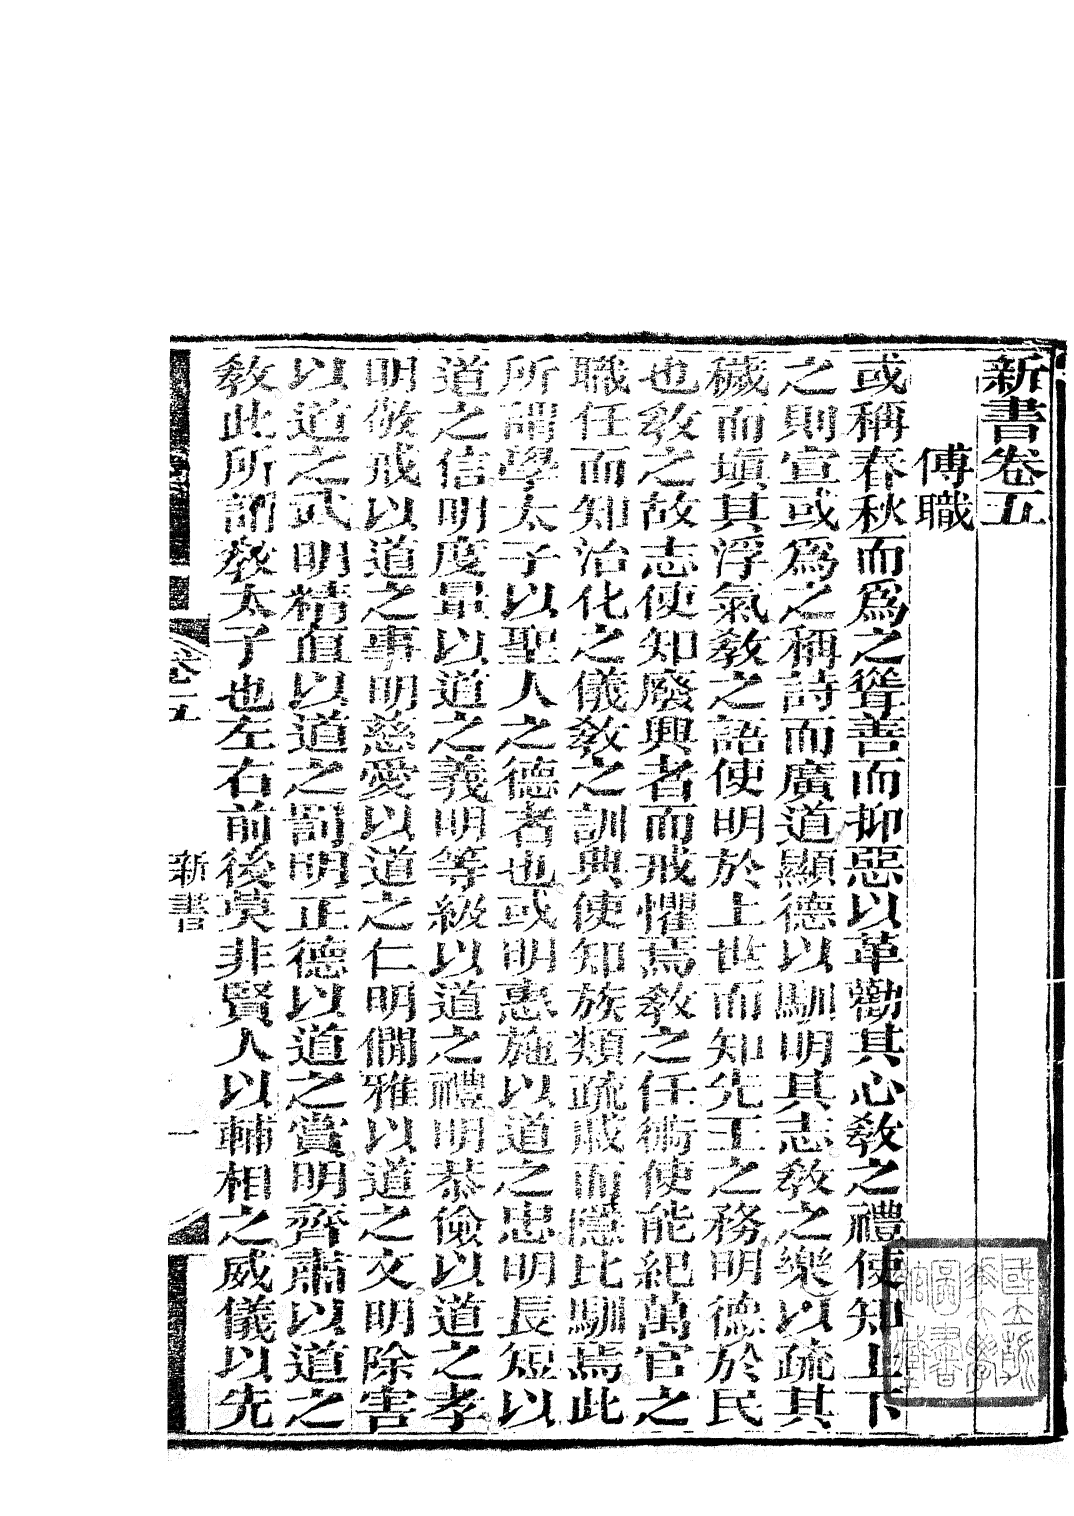 新書卷五
傅職
或稱春秋而爲之聳善而抑惡以革勸其心教之禮使知上下
之則宣或爲之稱詩而廣道顯德以馴明其志教之樂以疏其
穢而塡其浮氣教之語使明於上世而知先王之務明德於民
也教之故志使知廢興者而戒懼焉教之任術使能紀萬官之
職任而知治化之儀教之訓典使知族類疏戚而隱比馴焉此
所謂學太子以聖人之德者也或明惠施以道之忠明長短以
道之信明度量以道之義明等級以道之禮明恭儉以道之孝
明敬戒以道之事明慈愛以道之仁明僩雅以道之文明除害
以道之武明精直以道之罰明正德以道之賞明齊肅以道之
教此所謂教太子也左右前後莫非賢人以輔相之威儀以先
卷五
新書
一